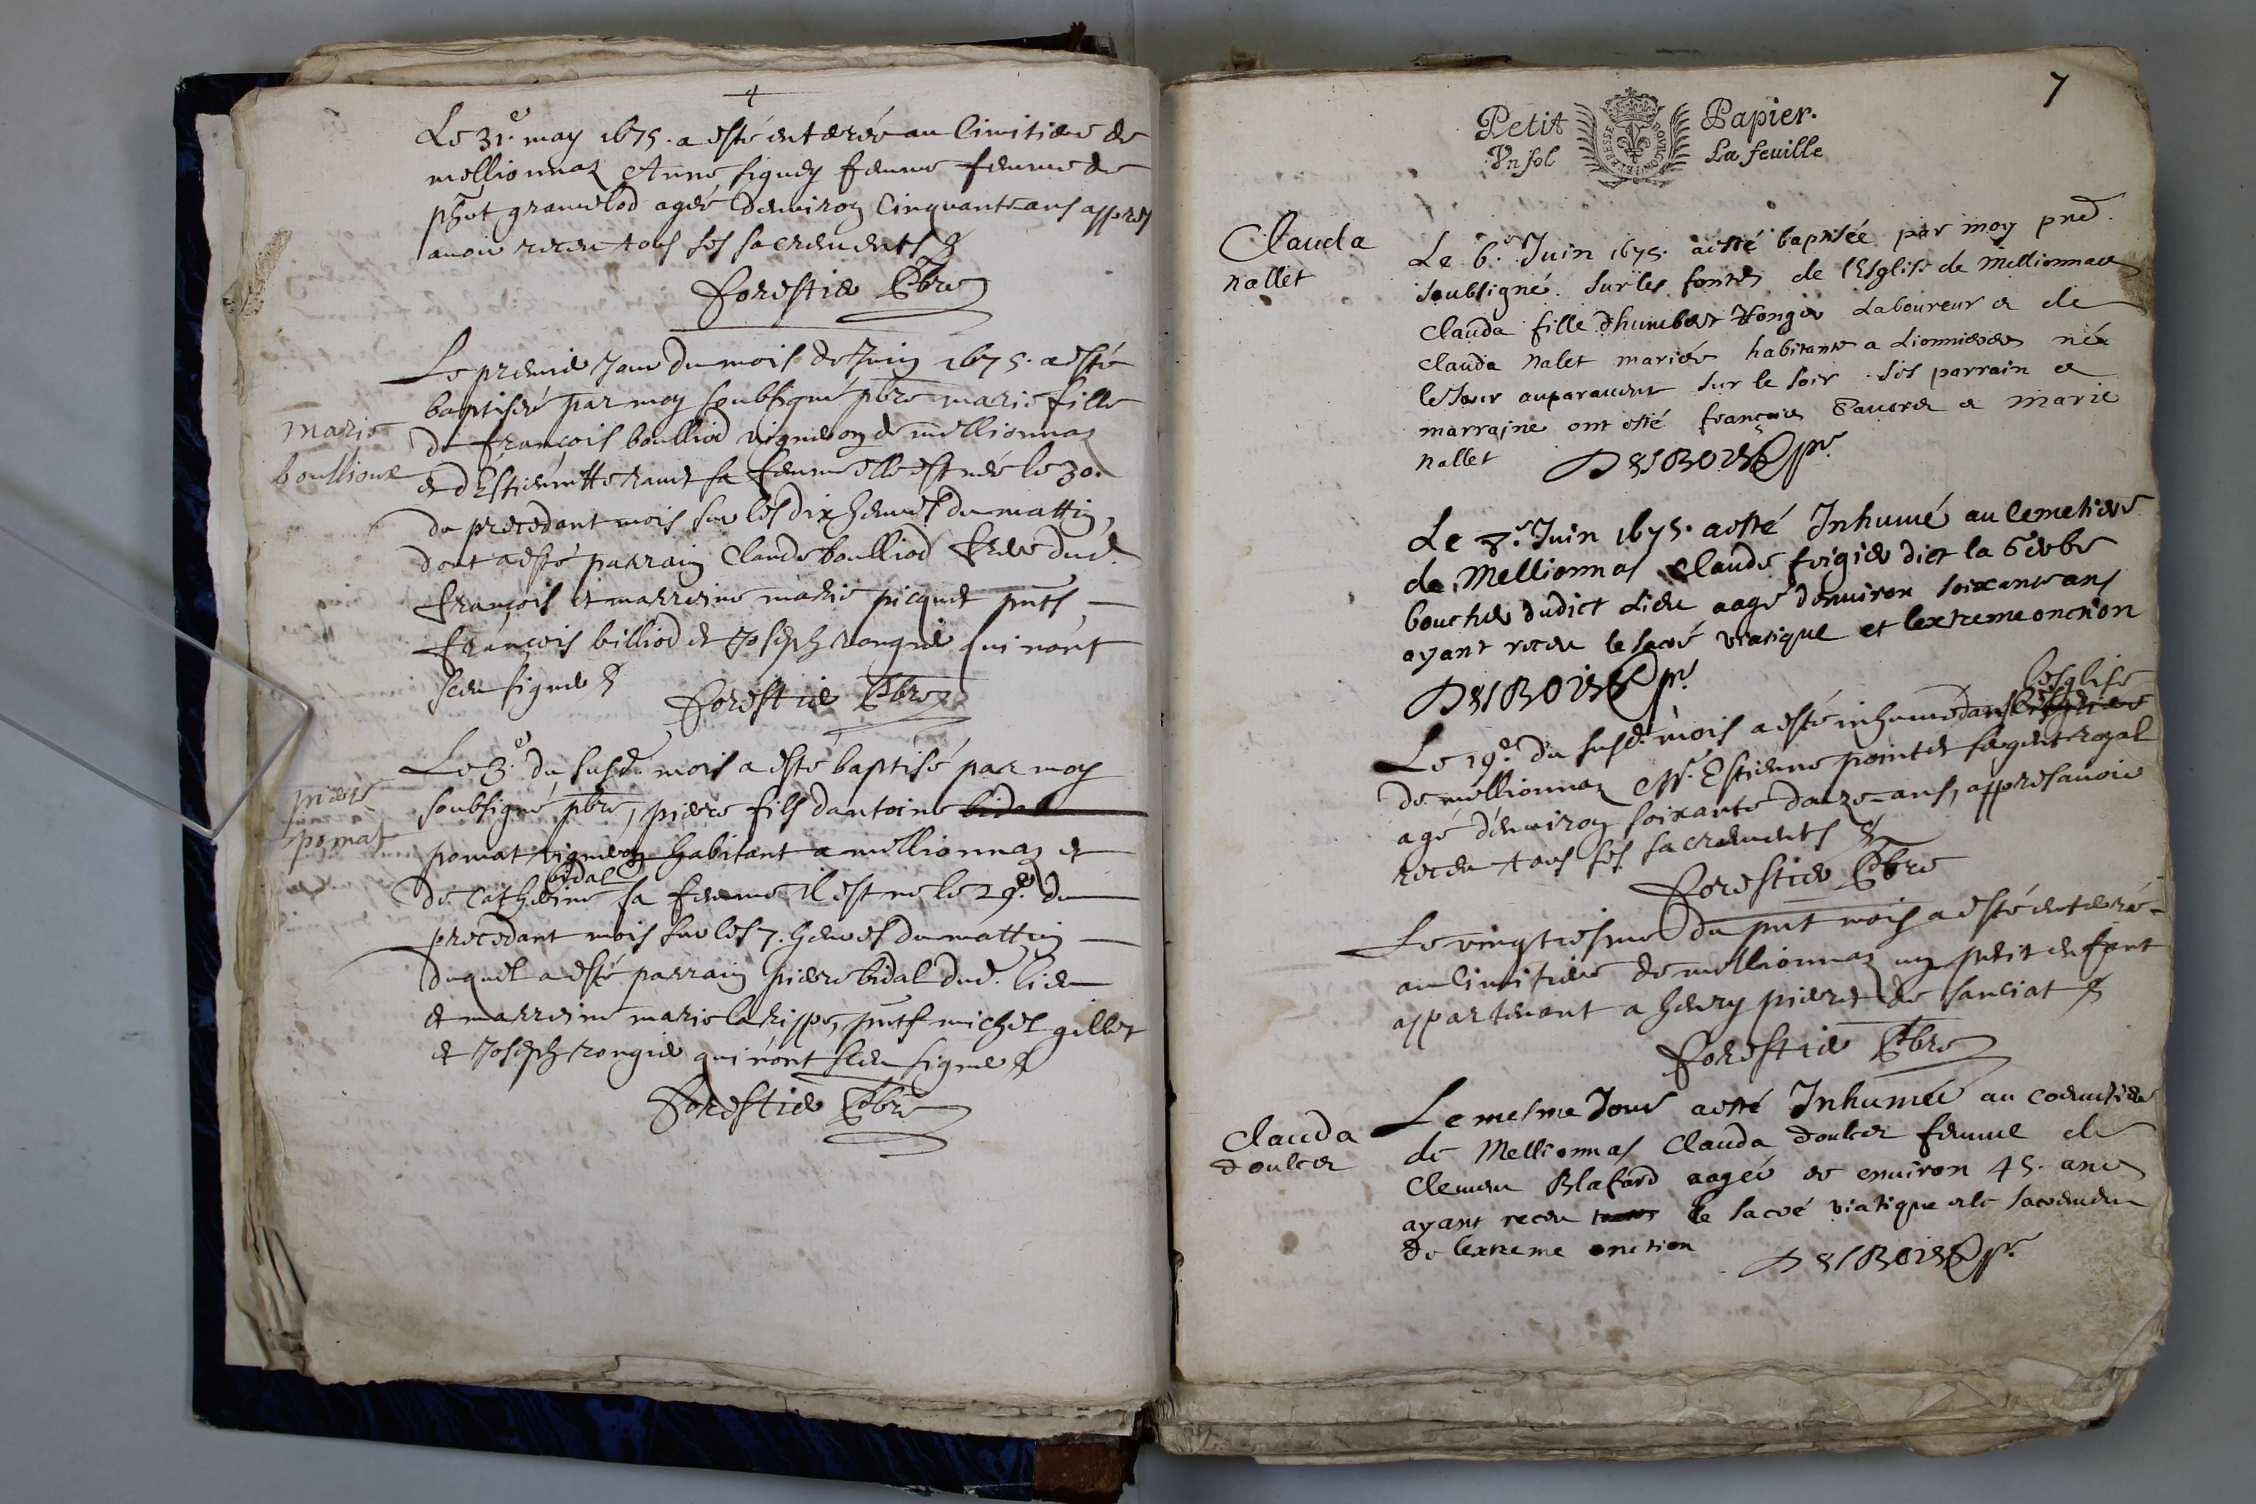 Le 31.e may 1675. a esté enterée au Cimitiere de
mellionnaz Anne siguey femme femme de
phet granclod agée denviron Cinquante ans appres
avoir receu tous ses sacrements
forestier Pbre
Marie
boullioud
Le premier Jour du mois de Juin 1675. a esté
baptisée par moy soubsigné pbre marie fille
de françois boulliod vigneron de mellionnaz
et d'Estiennette ravet sa femme elle est née le 30.
du precedant mois sur les dix heures du mattin,
dont a esté parrain Claude boulliod frere dud.
françois et marreine marie picquet pnts
françois billiod et Joseph rongier qui n'ont
sceu signer
forestier Pbre
piere
pomat
Le 3.e du susd. mois a esté baptisé par moy
soubsigné pbre, piere fils dantoine bidal
pomat vigneron habitant a mellionnaz et
bidal
de Catherine sa femme il est ne le 29.e du
precedant mois sur les 7. heures du mattin
duquel a esté parrain piere bidal dud. lieu
et marreine marie larippe, pnts michel gillet
et Joseph rongier qui n'ont sceu signer
forestier Pbre
7
Petit Papier.
Un sol La feuille
GRESSE BOURGOGNE
Clauda
nallet
Le 6.e Juin 1675. a esté baptisée par moy pred.
soubsigné. sur les fonts de l'Esglise de Mellionnaz
Clauda fille d'humbert Rongier Laboureur et de
Clauda Nalet mariés habitants a Lionnieres née
le Jour auparavent sur le soir. ses parrain et
marraine ont esté françois Favoret et Marie
nallet DESBOIS pr.
Le 7.e Juin 1675. a esté Inhumé au Cemetiere
de Mellionnas Claude forgier dict la Gerbe
boucher dudict Lieu aagé d'environ soixante ans
ayant receu le sacré viatique et lextreme onction
DESBOIS pr.
Le 19.e du susd. mois a esté inhumé dans l'esglise
de mellionnaz Mr. Estienne pointet sergent royal
agé d'environ soixante douze ans, appres avoir
receu tous ses sacrements
forestier Pbre
Le vingtiesme du pnt mois a esté enterré
au Cimitiere de mellionnaz un petit enfant
appartenant a henry pieret de sanciat
forestier Pbre
Clauda
doulcet
Le mesme Jour a esté Inhumée au Coemitiere
de Mellionnas Clauda doulcet femme de
Clement Blafard aagée de environ 45. ans
ayant receu le sacré viatique et le sacrement
de lextreme onction
DESBOIS pr.